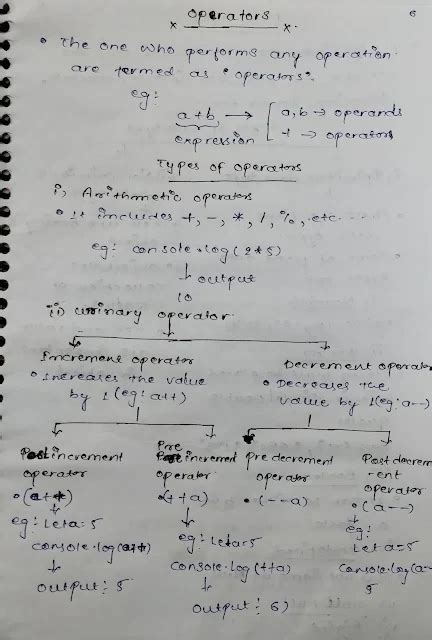 6
Operators
x x.
• The one who performs any operation
are termed as "operators".
eg:
a+b → a,b → operands
expression + → operators
Types of operators
i, Arithmetic operators
• It includes +, -, *, /, %, etc...
eg: console.log(2*5)
↳ output
10
ii) urinary operator
Increment operator Decrement operator
• Increases the value • Decreases the
by 1 (eg: a++) value by 1(eg: a--)
Postincrement Pre increment Pre decrement Post decrem
operator operator operator -ent
operator
•(a++) •(++a) •(--a) •(a--)
eg: Let a=5 eg: Let a=5 eg:
Let a=5
console.log(a++) console.log(++a) console.log(a-
Output: 5 output: 6) 5